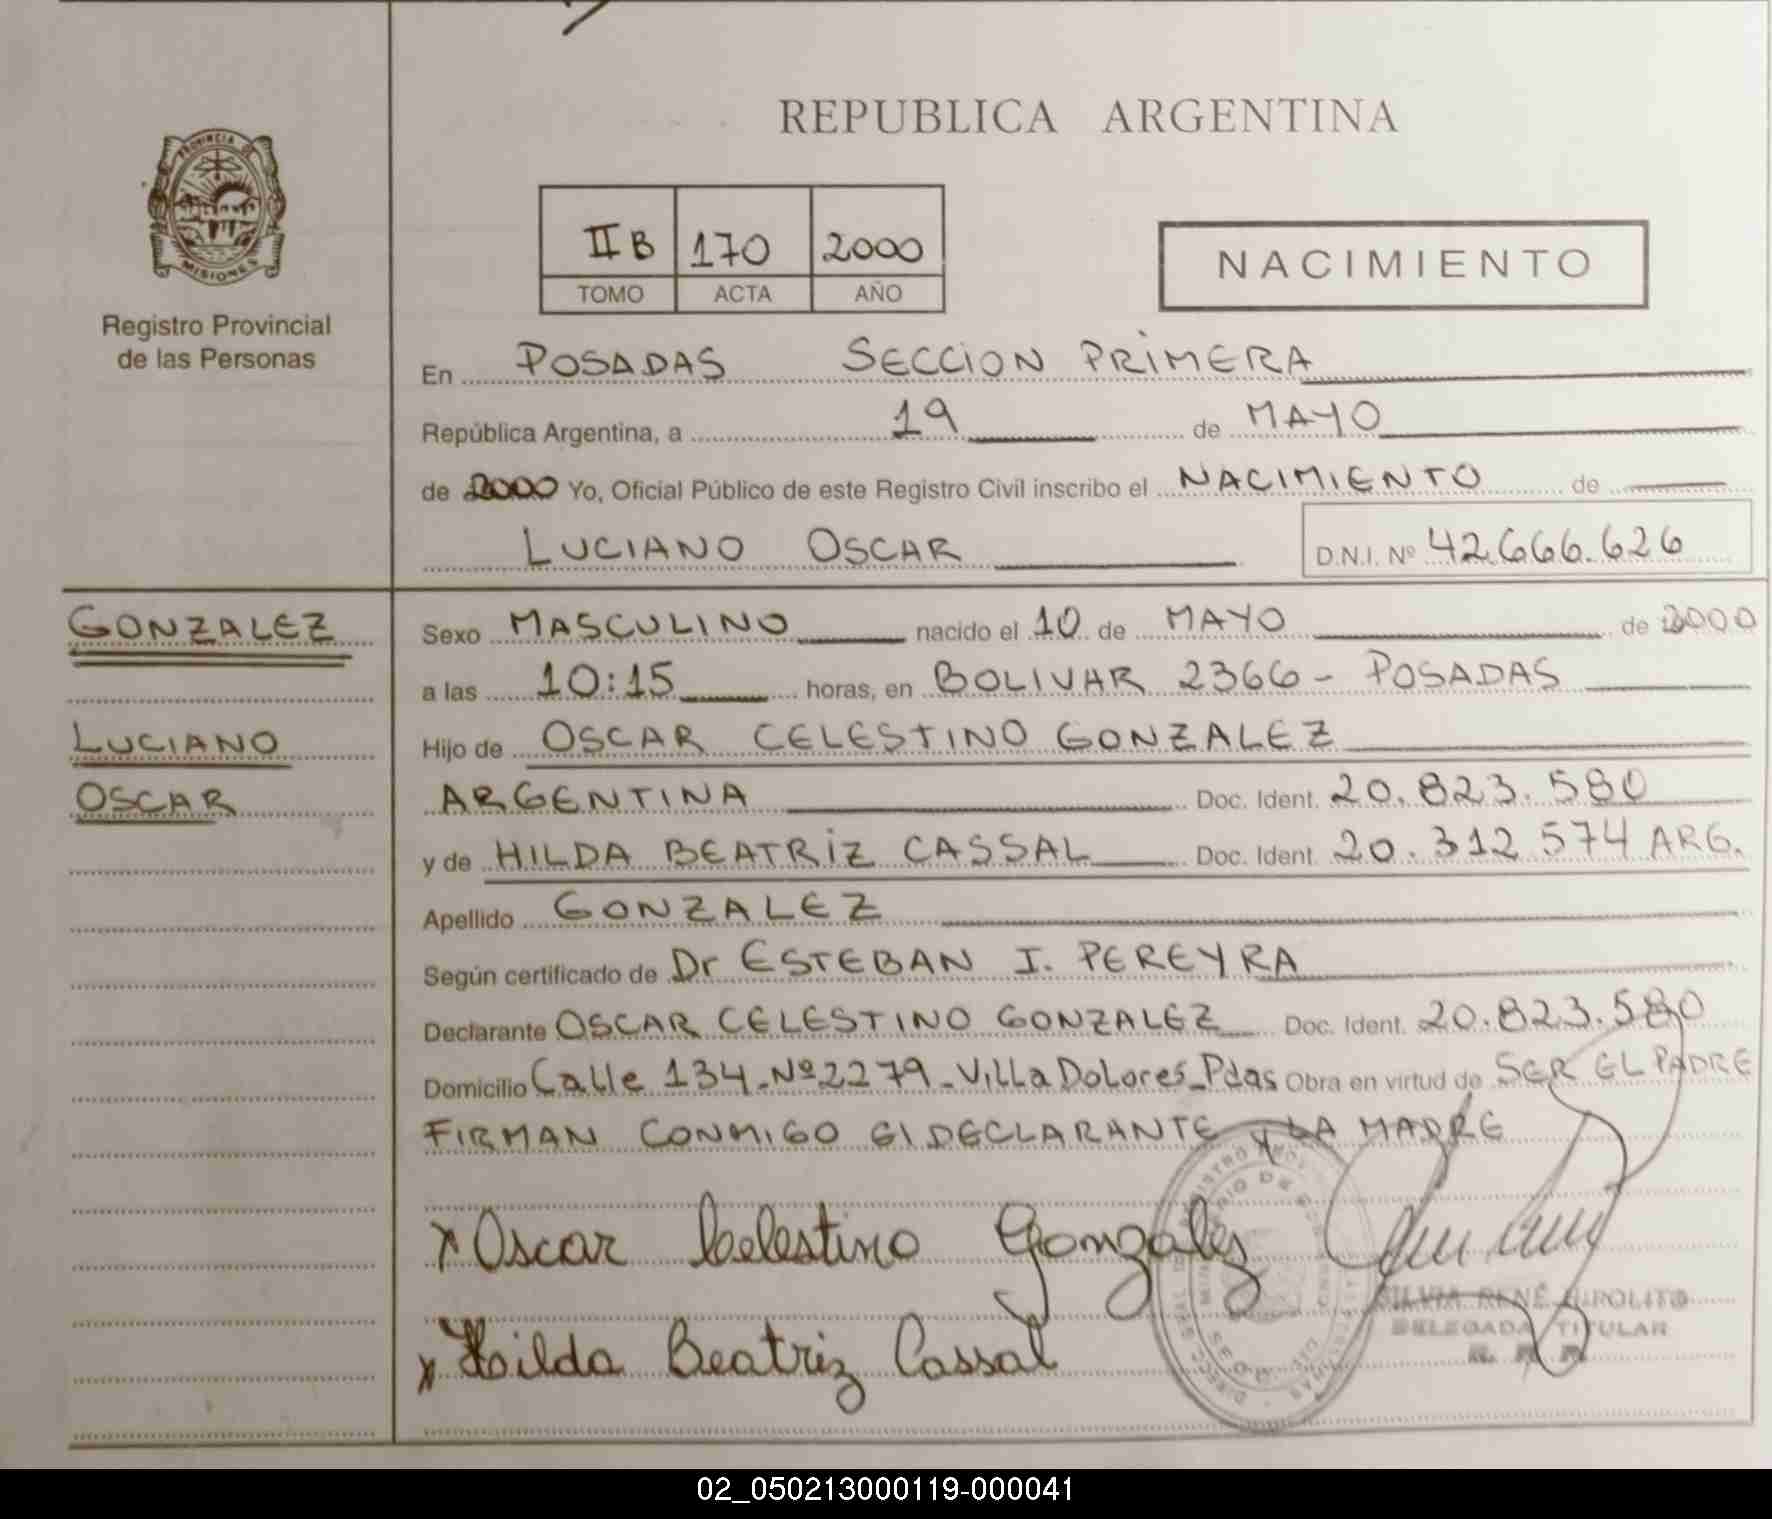 REPUBLICA ARGENTINA
PROVINCIA DE
MISIONES
Registro Provincial
de las Personas
II B 170 2000
TOMO ACTA AÑO
NACIMIENTO
En POSADAS SECCION PRIMERA
República Argentina, a 19 de MAYO
de 2000 Yo, Oficial Público de este Registro Civil inscribo el NACIMIENTO de
LUCIANO OSCAR D.N.I. Nº 42.666.626
GONZALEZ
LUCIANO
OSCAR
Sexo MASCULINO nacido el 10 de MAYO de 2000
a las 10:15 horas, en BOLIVAR 2366 - POSADAS
Hijo de OSCAR CELESTINO GONZALEZ
ARGENTINA Doc. Ident. 20.823.580
y de HILDA BEATRIZ CASSAL Doc. Ident. 20.312 574 ARG.
Apellido GONZALEZ
Según certificado de Dr ESTEBAN I. PEREYRA
Declarante OSCAR CELESTINO GONZALEZ Doc. Ident. 20.823.580
Domicilio Calle 134-Nº2279-Villa Dolores-Pdas Obra en virtud de SER EL PADRE
FIRMAN CONMIGO El DECLARANTE Y LA MADRE
x Oscar Celestino Gonzalez
x Hilda Beatriz Cassal
SILVIA RENÉ HIPOLITO
DELEGADA TITULAR
02_050213000119-000041